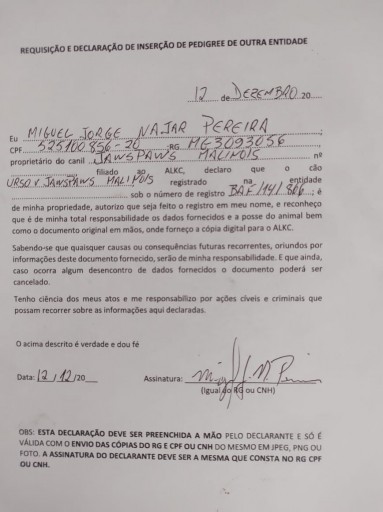 REQUISIÇÃO E DECLARAÇÃO DE INSERÇÃO DE PEDIGREE DE OUTRA ENTIDADE
12 de DEZEMBRO 20
Eu MIGUEL JORGE NAJAR PEREIRA
CPF 525100.856-20 RG MG3093056
proprietário do canil JAWSPAWS MALINOIS nº
filiado ao ALKC, declaro que o cão
URSO V. JAWSPAWS MALINOIS registrado na entidade
sob o número de registro BAF/141/866; é
de minha propriedade, autorizo que seja feito o registro em meu nome, e reconheço
que é de minha total responsabilidade os dados fornecidos e a posse do animal bem
como o documento original em mãos, onde forneço a cópia digital para o ALKC.
Sabendo-se que quaisquer causas ou consequências futuras recorrentes, oriundos por
informações deste documento fornecido, serão de minha responsabilidade. E que ainda,
caso ocorra algum desencontro de dados fornecidos o documento poderá ser
cancelado.
Tenho ciência dos meus atos e me responsabilizo por ações cíveis e criminais que
possam recorrer sobre as informações aqui declaradas.
O acima descrito é verdade e dou fé
Data: 12/12/20 Assinatura:
(Igual ao RG ou CNH)
OBS: ESTA DECLARAÇÃO DEVE SER PREENCHIDA A MÃO PELO DECLARANTE E SÓ É
VÁLIDA COM O ENVIO DAS CÓPIAS DO RG E CPF OU CNH DO MESMO EM JPEG, PNG OU
FOTO. A ASSINATURA DO DECLARANTE DEVE SER A MESMA QUE CONSTA NO RG CPF
OU CNH.